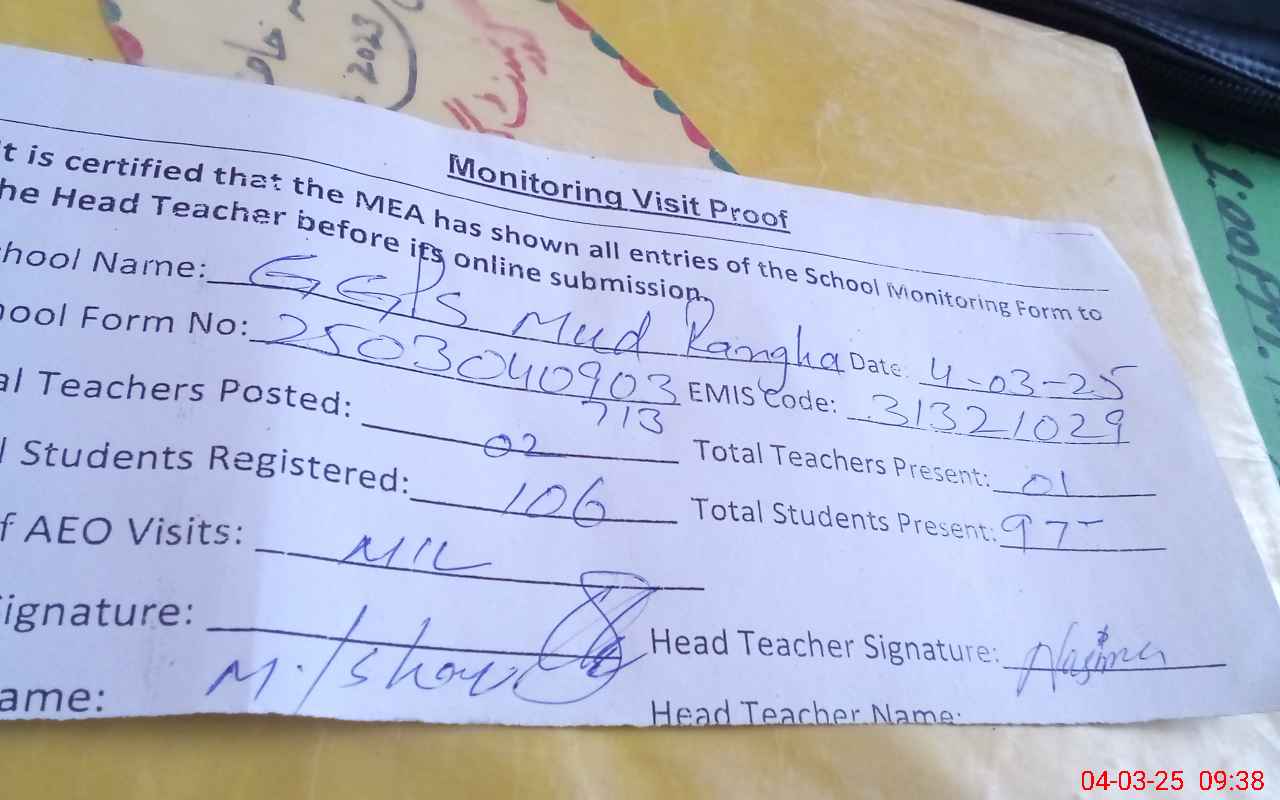 2023
Monitoring Visit Proof
t is certified that the MEA has shown all entries of the School Monitoring Form to
he Head Teacher before its online submission.
hool Name: GGPS Mud Rangha Date: 4-03-25
ool Form No: 2503040903713 EMIS Code: 31321029
al Teachers Posted: 02 Total Teachers Present: 01
l Students Registered: 106 Total Students Present: 97
f AEO Visits: NIL
ignature: Head Teacher Signature:
ame: Head Teacher Name:
04-03-25 09:38